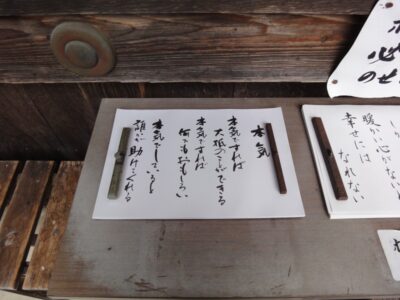 本気
本気ですれば
大抵のことができる
本気ですれば
何でもおもしろい
本気でしていると
誰かが助けてくれる
暖かい心がないと
幸せには
なれない
心
のせ